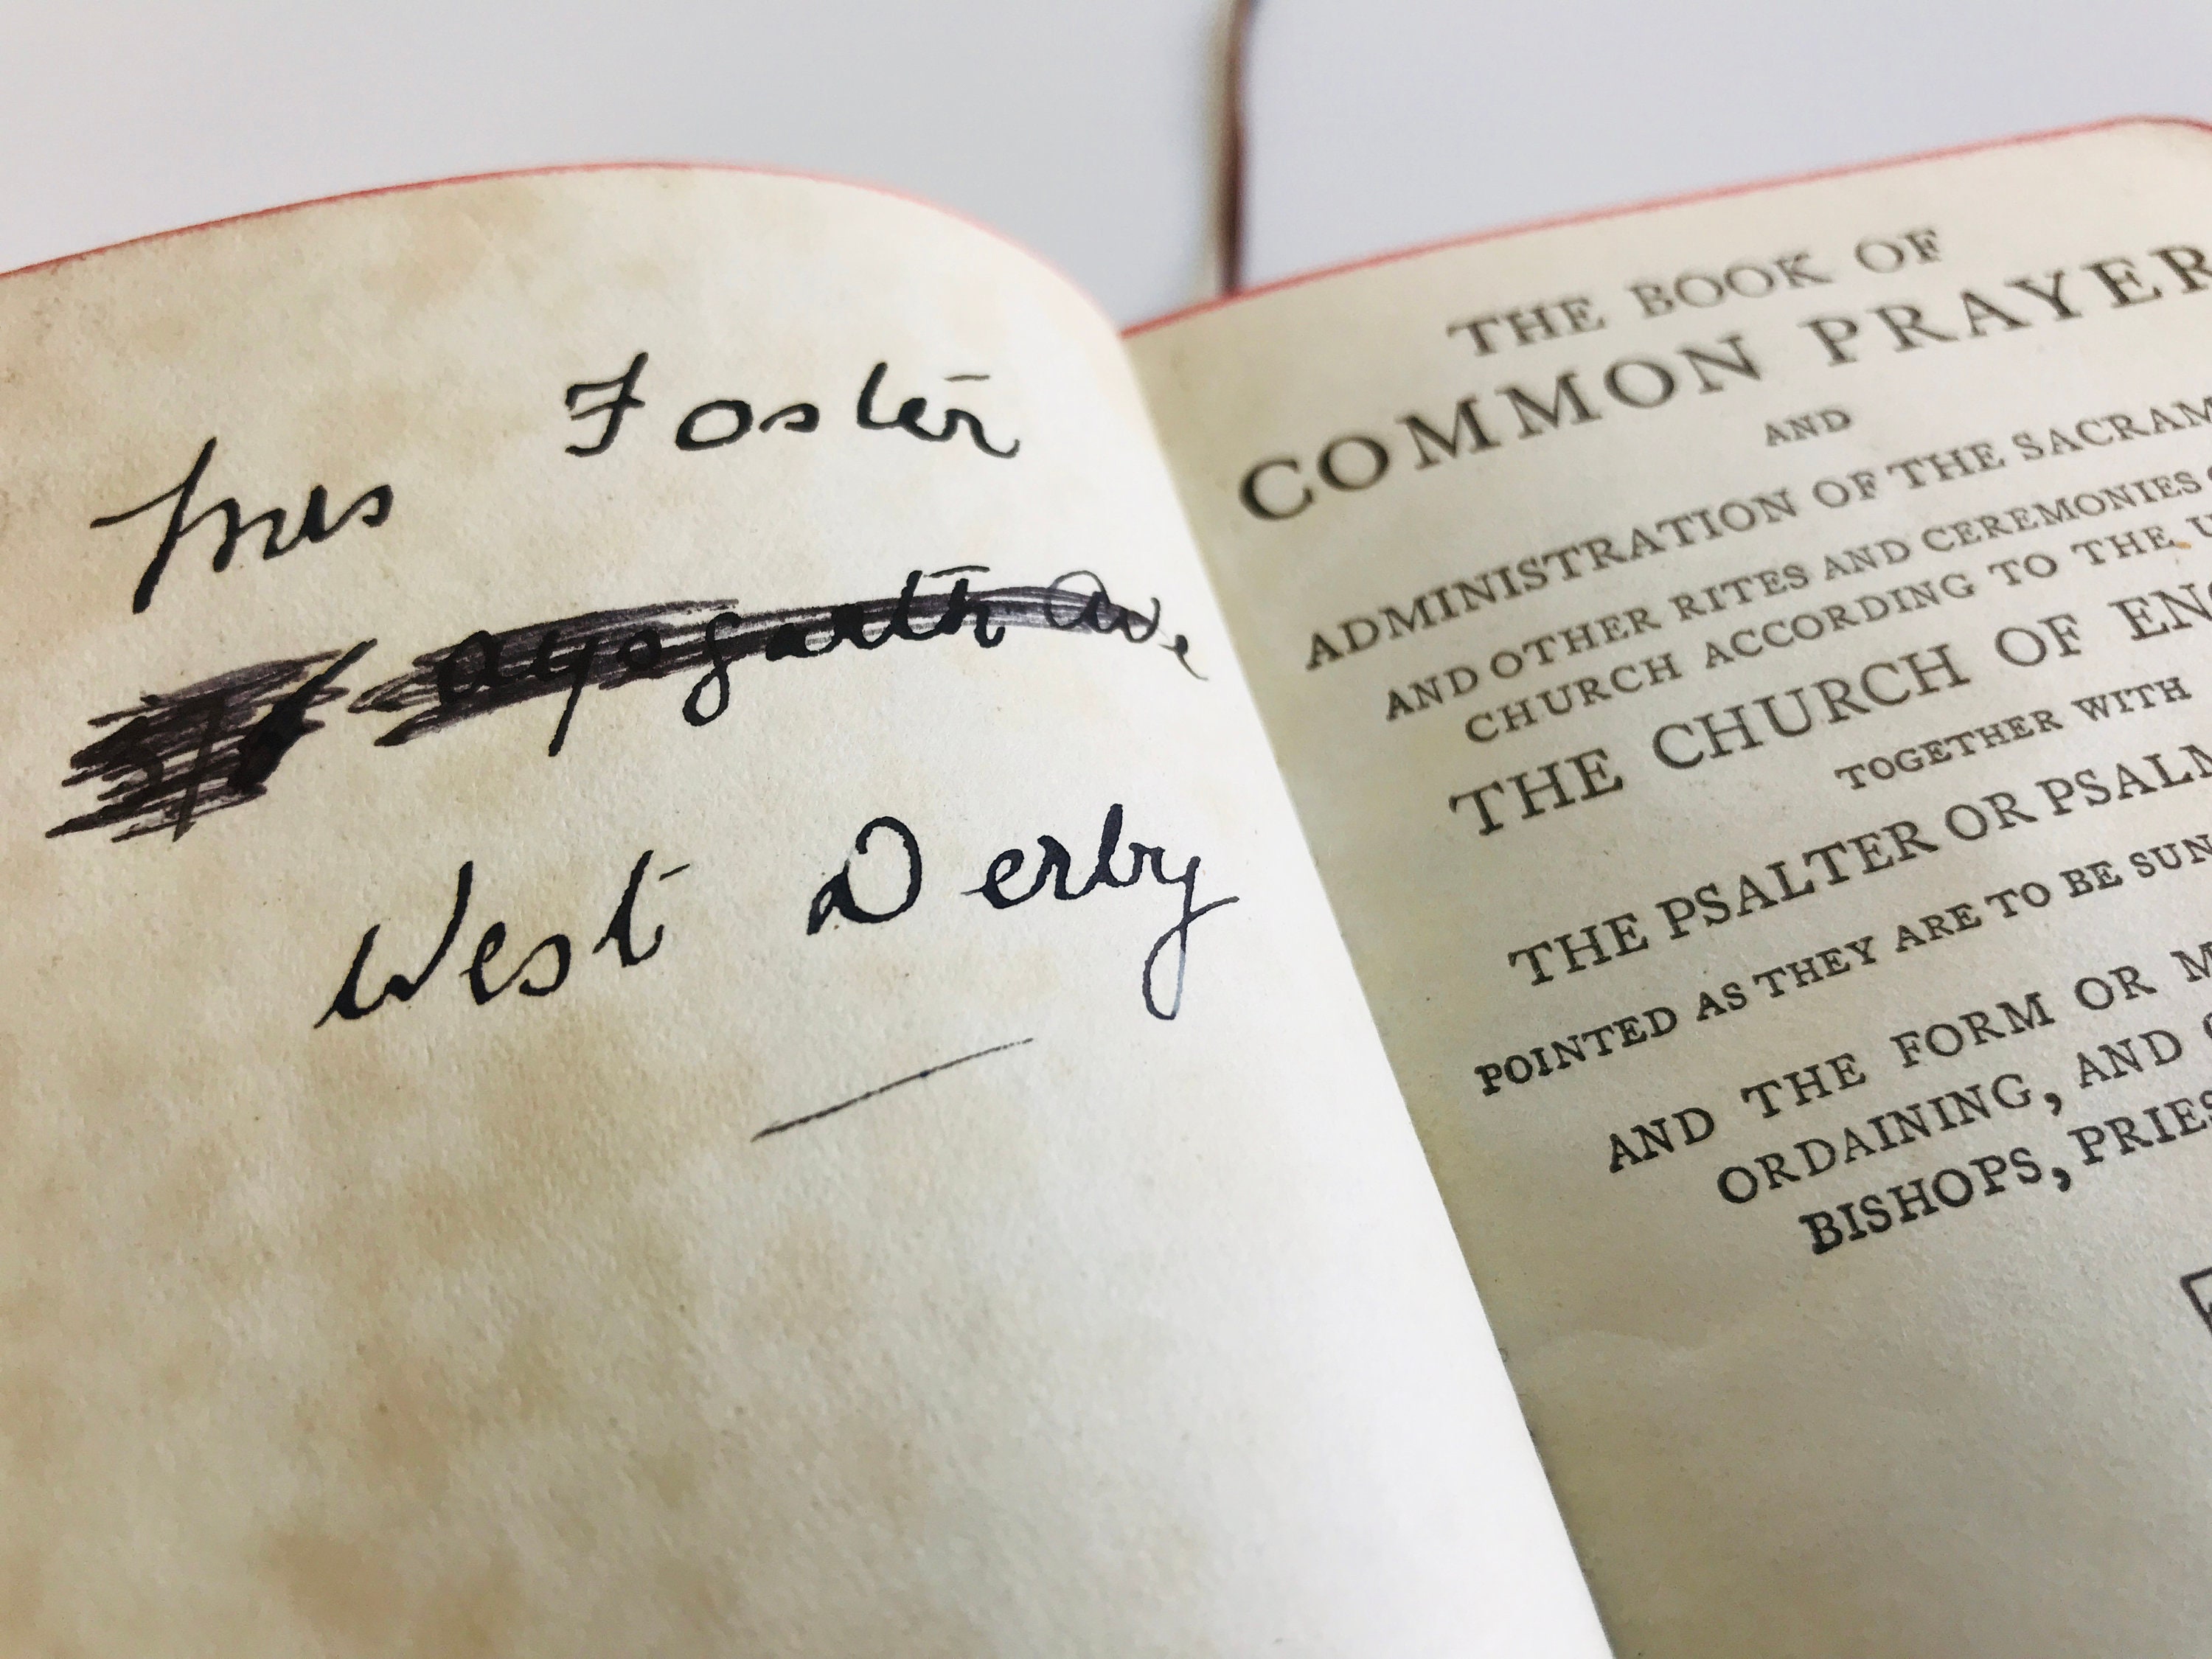 Mrs Foster
Aysgarth Ave
West Derby
THE BOOK OF
COMMON PRAYER
AND
ADMINISTRATION OF THE SACRAM
AND OTHER RITES AND CEREMONIES
CHURCH ACCORDING TO THE U
THE CHURCH OF ENG
TOGETHER WITH
THE PSALTER OR PSALM
POINTED AS THEY ARE TO BE SUN
AND THE FORM OR M
ORDAINING, AND
BISHOPS, PRIES